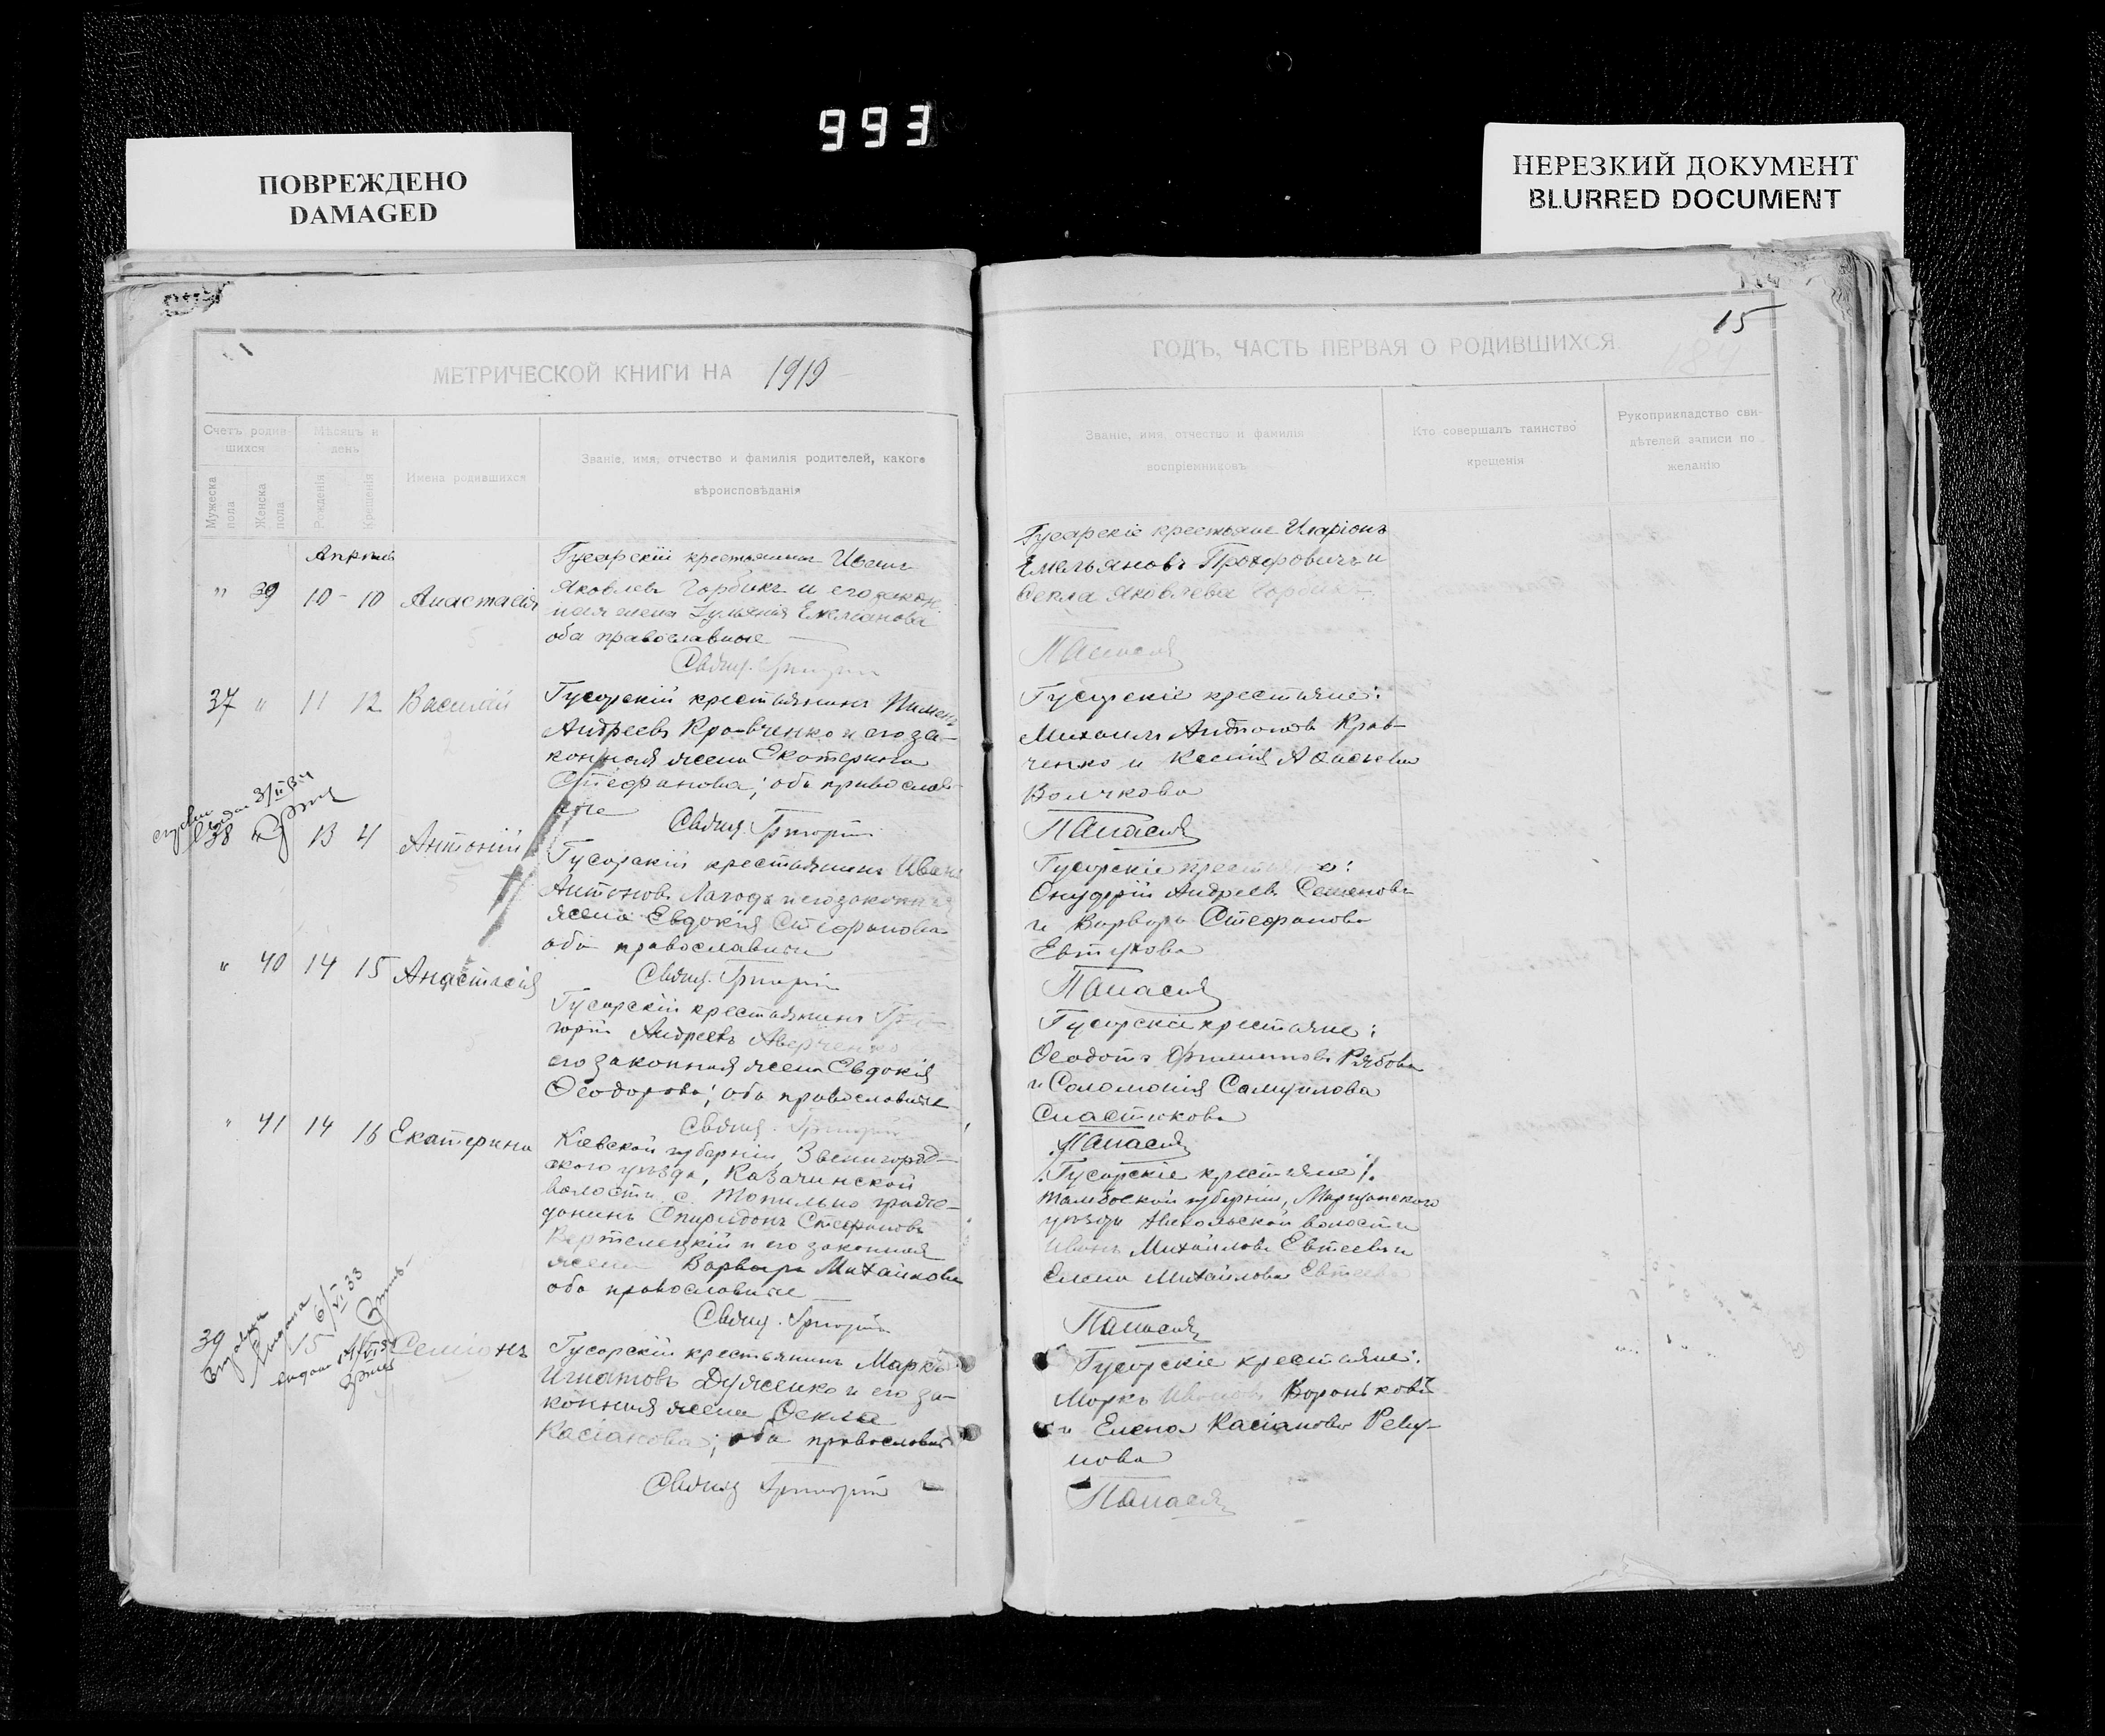 993
ПОВРЕЖДЕНО
DAMAGED
НЕРЕЗКИЙ ДОКУМЕНТ
BLURRED DOCUMENT
МЕТРИЧЕСКОЙ КНИГИ НА 1919
Счетъ родив-
шихся
Мѣсяцъ и
день
Мужеска
пола
Женска
пола
Рожденія
Крещенія
Имена родившихся
Званіе, имя, отчество и фамилія родителей, какого
вѣроисповѣданія
Апрѣль
" 39 10 - 10 Анастасія
Гусарскій крестьянинъ Иванъ
Яковлевъ Горбикъ и его закон.
ная жена Емеліанова
оба православные
Свящ. Григорій
37 " 11 12 Василій
Гусарскій крестьянинъ Пименъ
Андреевъ Кравченко и его за-
конная жена Екатерина
Стефанова; оба православ-
ные
Свящ. Григорій
38 " 13 4 Антоній
Гусарскій крестьянинъ Иванъ
Антоновъ и его законная
жена Евдокія Стефанова
оба православные
Свящ. Григорій
" 40 14 15 Анастасія
Гусарскій крестьянинъ Гри-
горій Андреевъ Аверченко
его законная жена Евдокія
Ѳеодорова; оба православные
Свящ. Григорій
" 41 14 16 Екатерина
Кіевской губерніи, Звенигород-
скаго уѣзда, Казачинской
волости с. Топильно гражд-
данинъ Спиридонъ Стефановъ
и его законная
жена Варвара Михайлова
оба православные
Свящ. Григорій
39 15 Семіонъ
Гусарскій крестьянинъ Маркъ
Игнатовъ Дуженко и его за-
конная жена Ѳекла
Касіанова; оба православн
Свящ Григорій
15
184
ГОДЪ, ЧАСТЬ ПЕРВАЯ О РОДИВШИХСЯ.
Званіе, имя, отчество и фамилія
воспріемниковъ
Кто совершалъ таинство
крещенія
Рукоприкладство сви-
дѣтелей записи по
желанію
Гусарскіе крестьяне Иларіонъ
Емельяновъ Прохоровичъ и
Ѳекла Яковлева Горбикъ.
Гусарскіе крестьяне:
Михаилъ Крав-
ченко и Ксенія
Волчкова
Гусарскіе крестьяне:
Онуфрій Андреевъ Семеновъ
и Варвара Стефанова
Евтухова
Гусарскіе крестьяне:
Ѳеодотъ Рябовъ
и Соломонія Самуилова
Сластюкова
Гусарскіе крестьяне
Тамбовской губерніи, Моршанскаго
уѣзда Никольской волости
Иванъ Михайловъ Евтеевъ и
Елена Михайлова Евтеева
Гусарскіе крестьяне:
Маркъ Ивановъ Вороньковъ
и Елена Касіанова Реву-
нова